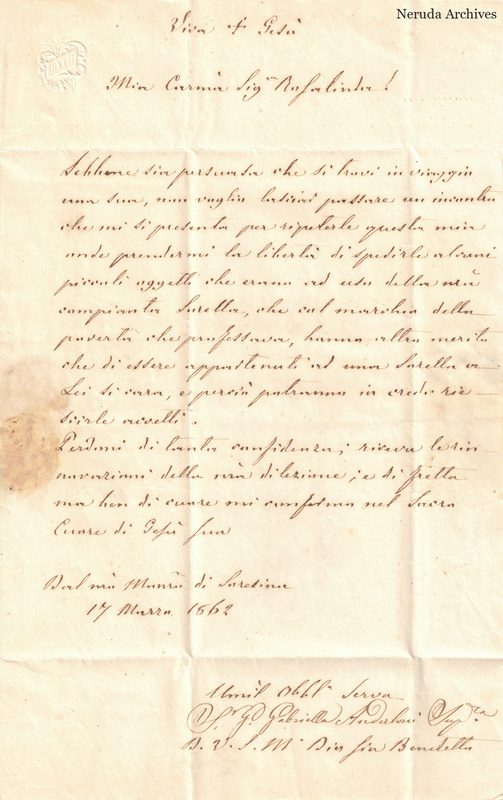 Neruda Archives
Viva + Gesù
Mia Carma Sigra Rosalinda!
Sebbene sia persuasa che si trovi in viaggio
una sua, non voglio lasciar passare un incontro
che mi si presenta per ripeterle questa mia
onde prendermi la libertà di spedirle alcuni
piccoli oggetti che erano ad uso della nrã
compianta Sorella, che col marchio della
povertà che professava, hanno altro merito
che di essere appartenuti ad una Sorella a
Lei sì cara, e perciò potranno io credo rie-
scirle accetti.
Perdoni di tanta confidenza; riceva le rin
novazioni della nrã dilezione; e di fretta
ma ben di cuore mi confermo nel Sacro
Cuore di Gesù sua
Dal nrõ Monrõ di Soresina
17 Marzo 1862
Umil Obblma Serva
Sr Ga Gabriella Anderloni Supra
D. V. S. Ma Dio sia Benedetto